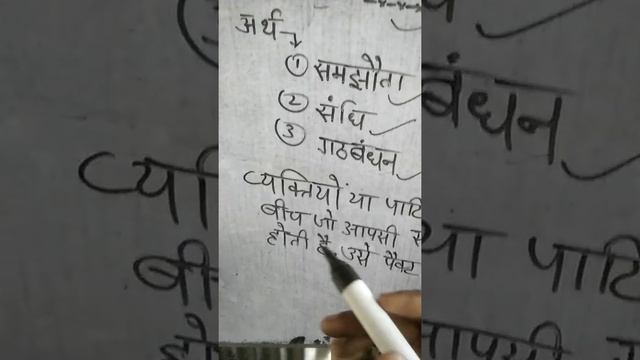 अर्थ→
① समझौता
② संधि
③ गठबंधन
व्यक्तियों या पार्टि
बीच जो आपसी स
होती है, उसे पैक्ट